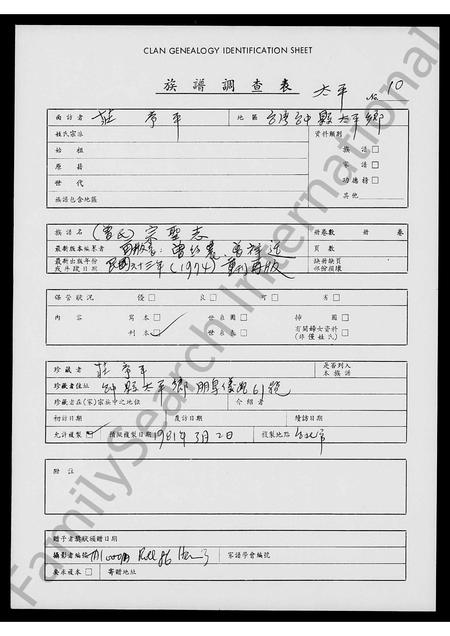 CLAN GENEALOGY IDENTIFICATION SHEET
族譜調查表 太平 No. 10
面訪者 莊 平 地區 台灣台中縣太平鄉
姓氏宗派 資料類別
始祖 族譜□
原籍 家譜□
世代 功德榜□
族譜包含地區 其他
族譜名 (曾氏)宗聖志 冊卷數 冊 卷
最新版本編纂者 曾 曾祥
頁數
最新出版年份或年改日期 民國六十三年(1974)重刊再版
缺冊缺頁部份損壞
保管狀況 優□ 良□ 可□ 劣□
內容 寫本□ 世系圖□ 掃圖□
刊本□ 世系表□ 有關婦女資料(非僅姓氏)
珍藏者 莊 平 是否列入本族譜
珍藏者住址 台中縣太平鄉 61號
珍藏者在(家)宗族中之地位 介紹者
初訪日期 度訪日期 續訪日期
允許複製□ 預擬複製日期 1981年3月2日 複製地點 台北市
附註
贈予者獎狀頒贈日期
攝影者編號 Roll 家譜學會編號
要求複本□ 寄贈地址
FamilySearch International